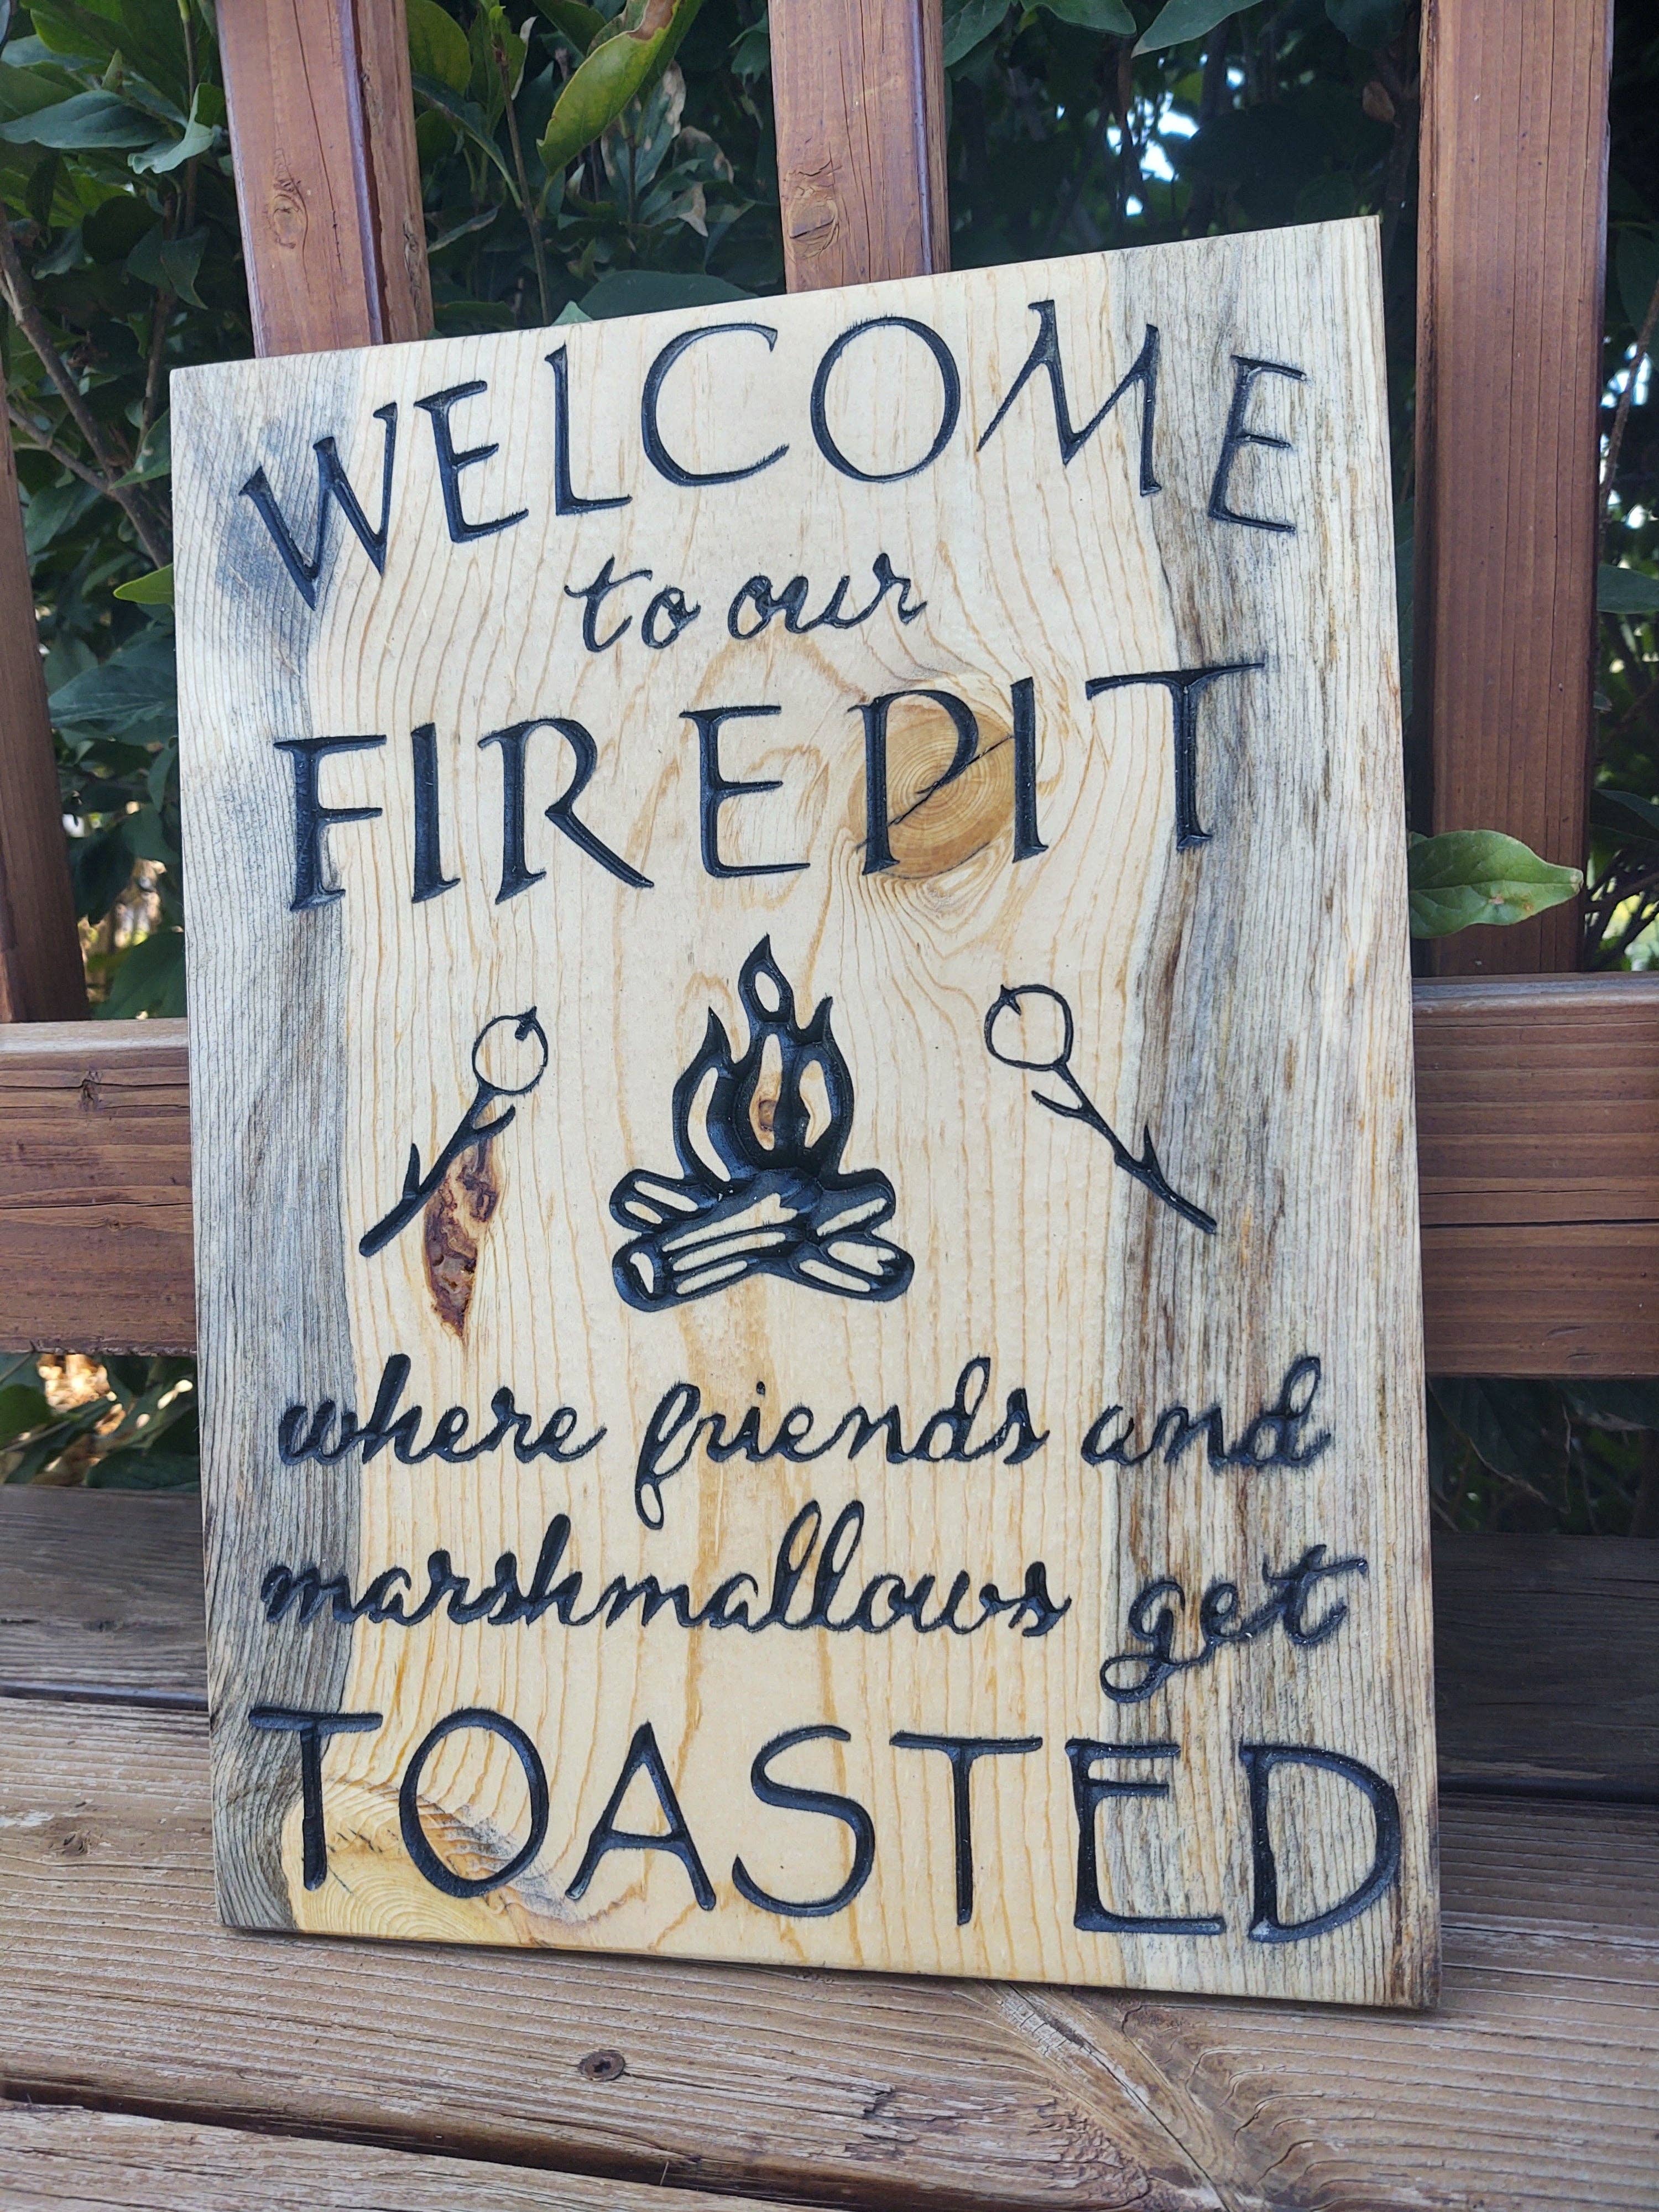 WELCOME
to our
FIRE PIT
where friends and
marshmallows get
TOASTED